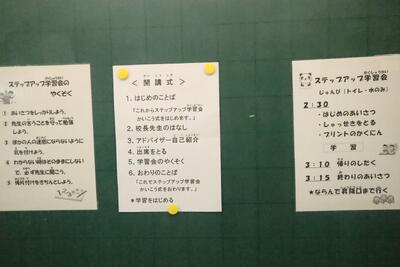 ステップアップ学習会の
やくそく
① あいさつをしっかりしよう。
② 先生の言うことを守って勉強
しよう。
③ ほかの人の迷惑にならないように
気を付けよう。
④ わからない時はそのままにしない
で、必ず先生に聞こう。
⑤ 後片付けをきちんとしよう。
＜ 開講式 ＞
かいこうしき
1. はじめのことば
「これからステップアップ学習会
かいこう式をはじめます。」
2. 校長先生のはなし
3. アドバイザー自己紹介
4. 出席をとる
5. 学習会のやくそく
6. おわりのことば
「これでステップアップ学習会
かいこう式をおわります。」
＊学習をはじめる
ステップアップ学習会
がくしゅうかい
じゅんび（トイレ・水のみ）
2：30
・はじめのあいさつ
・しゅっせきをとる
・プリントのかくにん
学習
3：10 帰りのしたく
3：15 終わりのあいさつ
★ならんで昇降口まで行く